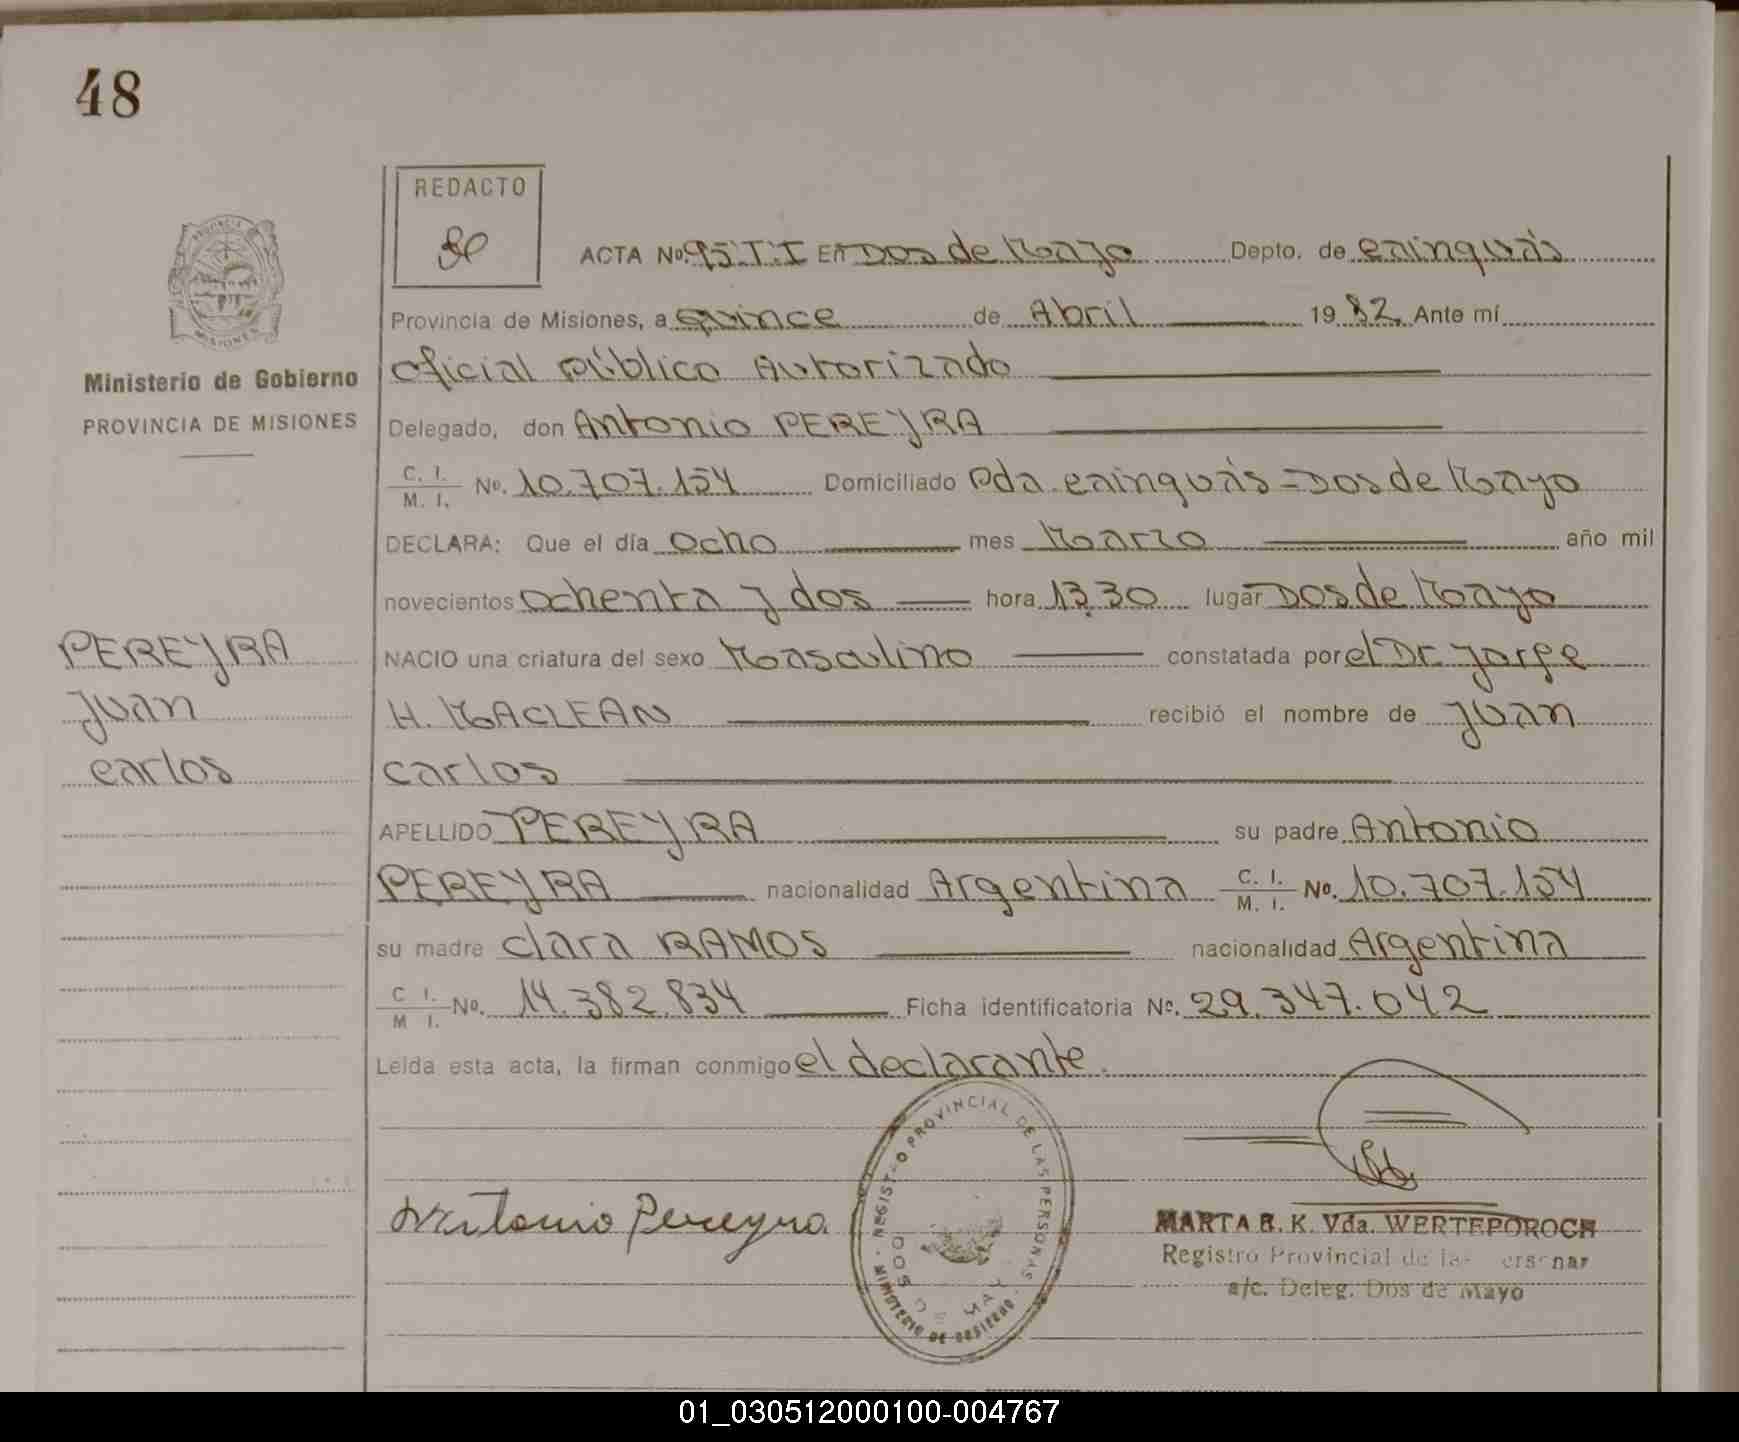 48
REDACTO
ACTA No. 95.T.I En Dos de Mayo Depto. de Cainguás
Provincia de Misiones, a quince de Abril 1982, Ante mí
Oficial Público Autorizado
Ministerio de Gobierno
PROVINCIA DE MISIONES
Delegado, don Antonio PEREYRA
C. I. / M. I. No. 10.707.154 Domiciliado Pda. Cainguás = Dos de Mayo
DECLARA: Que el día Ocho mes Marzo año mil
novecientos ochenta y dos hora 13,30 lugar Dos de Mayo
NACIO una criatura del sexo Masculino constatada por el Dr. Jorge
H. MACLEAN recibió el nombre de Juan
Carlos
PEREYRA
Juan
Carlos
APELLIDO PEREYRA su padre Antonio
PEREYRA nacionalidad Argentina C. I. / M. I. No. 10.707.154
su madre Clara RAMOS nacionalidad Argentina
C I. / M I. No. 14.382.834 Ficha identificatoria No. 29.347.042
Leida esta acta, la firman conmigo el declarante.
Antonio Pereyra
REGISTRO PROVINCIAL DE LAS PERSONAS
MINISTERIO DE GOBIERNO
DOS DE MAYO
MARTA R. K. Vda. WERTEPOROCH
Registro Provincial de las Personas
a/c. Deleg. Dos de Mayo
01_030512000100-004767